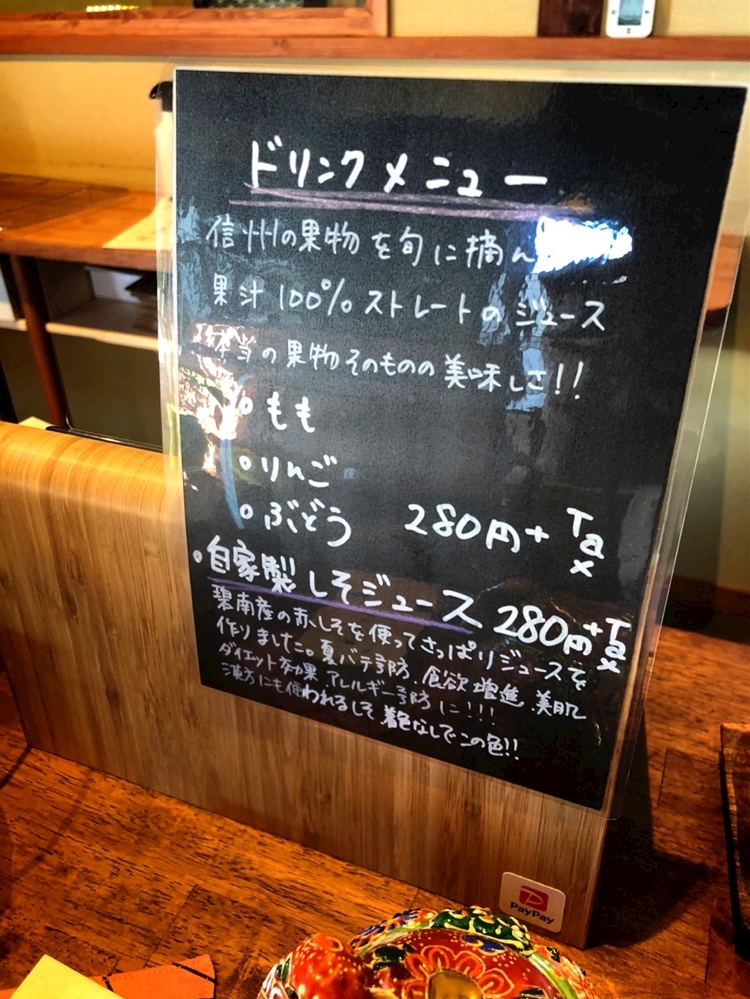 ドリンクメニュー
信州の果物を旬に摘ん
果汁100%ストレートのジュース
本当の果物そのものの美味しさ!!
もも
りんご
ぶどう 280円+Tax
自家製しそジュース 280円+Tax
碧南産の赤しそを使ってさっぱりジュースを
作りました。夏バテ予防 食欲増進 美肌
ダイエット効果 アレルギー予防に!!!
漢方にも使われるしそ 着色なしでこの色!!
PayPay